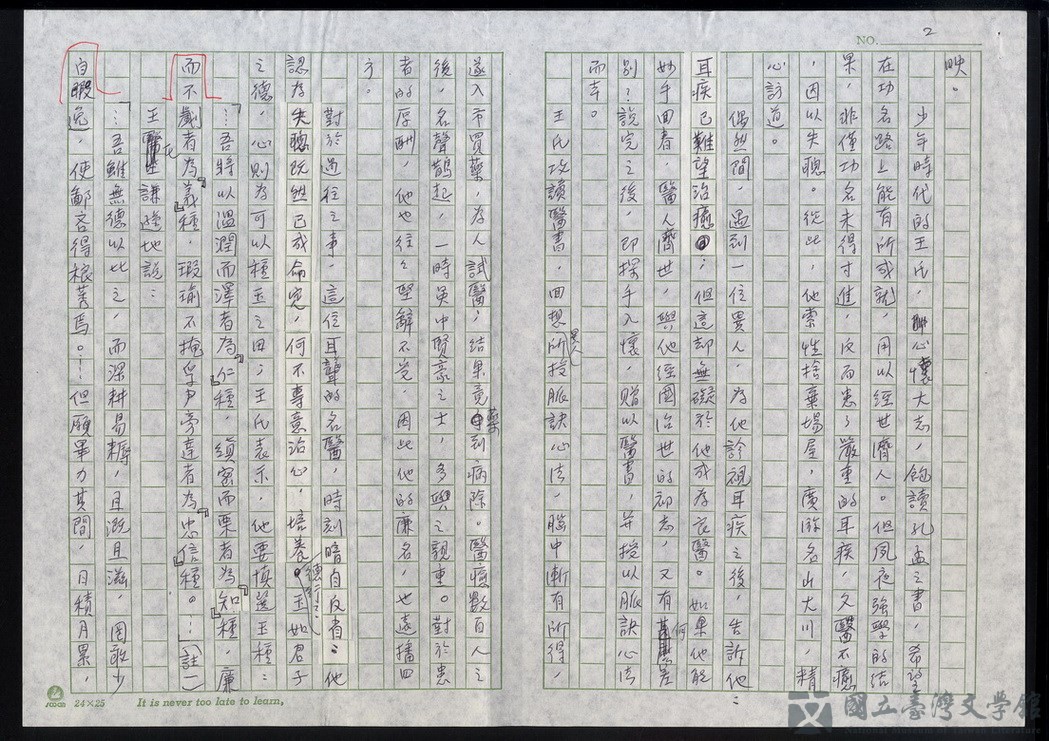 NO. 2
映。
少年時代的王氏,心懷大志,飽讀孔孟之書,希望
在功名路上能有所成就,用以經世濟人。但夙夜強學的結
果,非僅功名未得寸進,反而患了嚴重的耳疾,久醫不癒
,因以失聰。從此,他索性捨棄場屋,廣游名山大川,精
心訪道。
偶然間,遇到一位異人,為他診視耳疾之後,告訴他:
耳疾已難望治癒;但這却無礙於他成為良醫。如果他能
妙手回春,醫人濟世,與他經國治世的初志,又有何差
別?說完之後,即探手入懷,贈以醫書,并授以脈訣心法
而去。
王氏攻讀醫書,回想異人所授脈訣心法,腦中漸有所得,
遂入市買藥,為人試醫,結果竟藥到病除。醫癒數百人之
後,名聲鵲起,一時吳中賢豪之士,多與之親重。對於患
者的厚酬,他也往々堅辭不受,因此他的廉名,也遠播四
方。
對於過往之事,這位耳聾的名醫,時刻暗自反省:他
認為失聰既然已成命定,何不專意治心,培養德行;玉如君子
之德,心則為可以種玉之田;王氏表示,他要填選玉種:
「…吾將以溫潤而澤者為『仁』種,縝密而栗者為『知』種,廉
而不劌者為『義』種,瑕瑜不掩孚尹旁達者為『忠信』種。…」(註一)
王氏謙遜地說:
「…吾雖無德以比之,而深耕易耨,且溉且滋,罔敢少
自暇逸,使鄙吝得根莠焉。…但願畢力其間,日積月累,
24×25 It is never too late to learn,
國立臺灣文學館
National Museum of Taiwan Literature